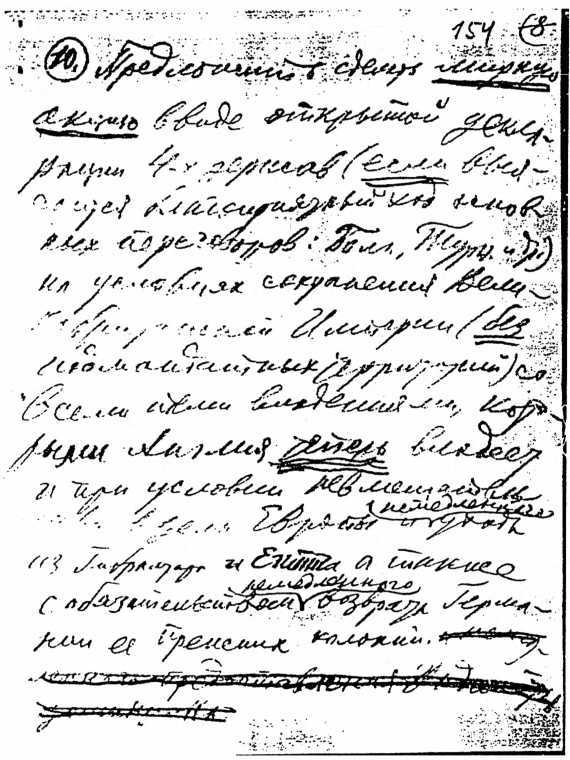 154 (8
10. Предложить сделать мирную
акцию в виде открытой декла-
рации 4-х держав (если выя-
снится благоприятный ход основ-
ных переговоров: Болг, Тур. и др.)
на условиях сохранения Вели-
кобританской Империи (без
подмандатных территорий) со
всеми теми владениями, кото-
рыми Англия теперь владеет
и при условии невмешательства
в дела Европы и немедленного ухода
из Гибралтара и Египта а также
с обязательством немедленного возврата Герма-
нии ее прежних колоний.